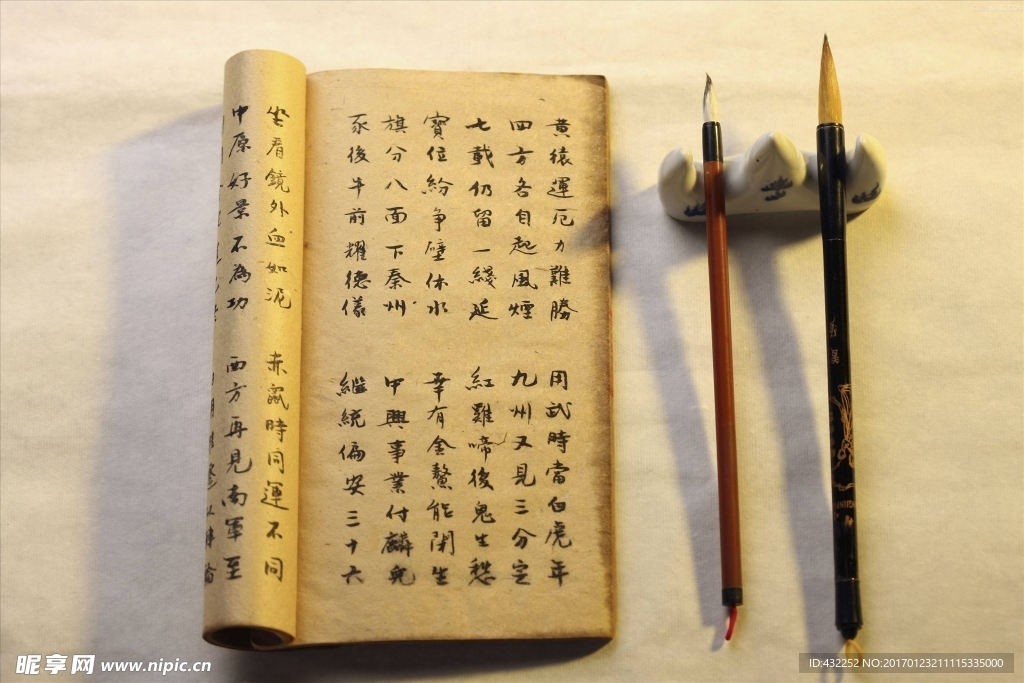 黃猿運厄力難勝　用武時當白虎年
四方各自起風煙　九州又見三分定
七載仍留一綫延　紅雞啼後鬼生愁
寶位紛爭壁休水　幸有金鰲能閉生
旗分八面下秦州　中興事業付麟兒
豕後牛前耀德儀　繼統偏安三十六
坐看鏡外血如泥　赤鼠時同運不同
中原好景不為功　西方再見南軍至
昵享网 www.nipic.cn
ID:432252 NO:20170123211115335000